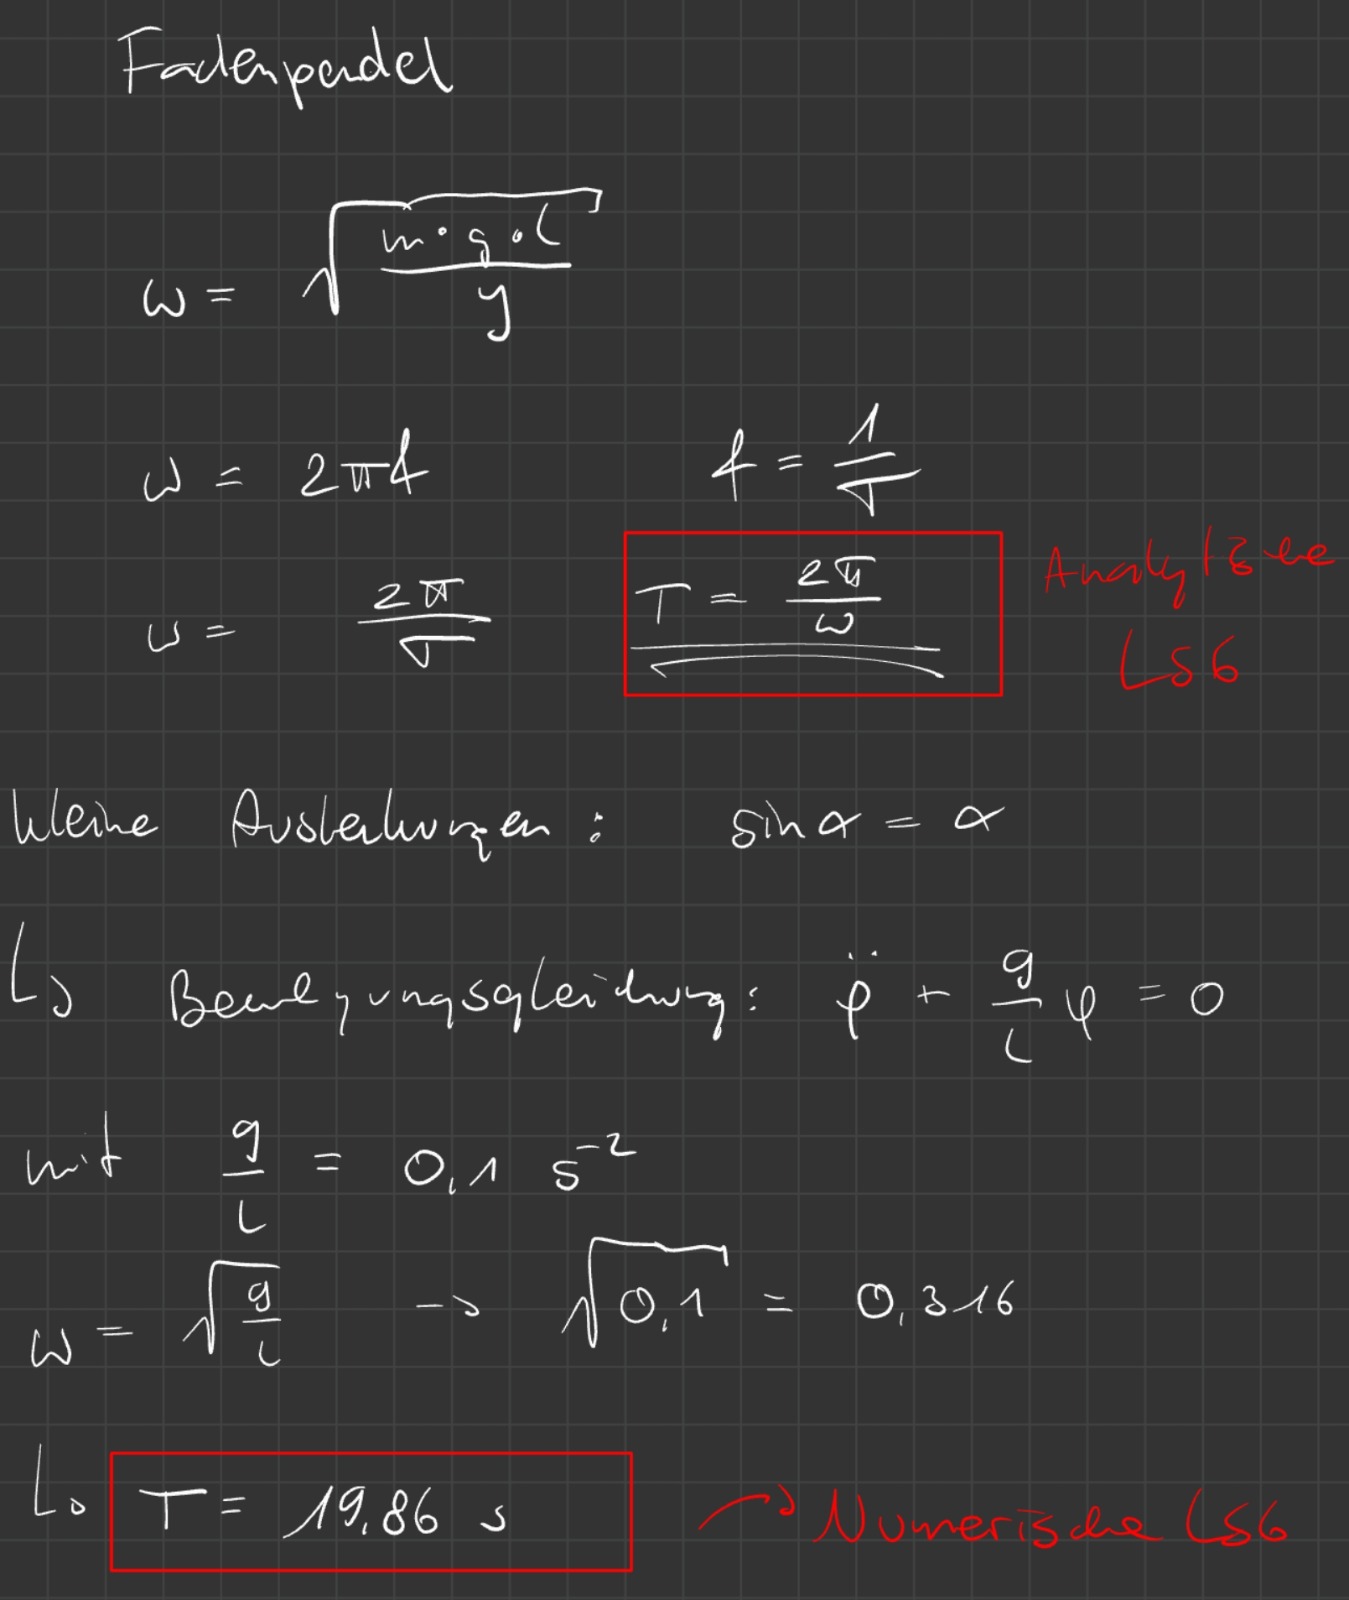 Fadenpendel
ω = √(m·g·l / y)
ω = 2πf    f = 1/T
ω = 2π/T    T = 2π/ω    Analytische
LSG
kleine Auslenkungen : sin α = α
↳ Bewegungsgleichung : φ̈ + g/l φ = 0
mit g/l = 0,1 s⁻²
ω = √(g/l) → √0,1 = 0,316
↳ T = 19,86 s → Numerische LSG